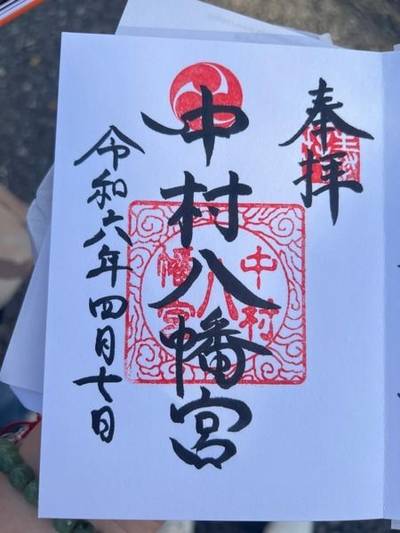 奉拝
中村八幡宮
令和六年四月七日
中村
八
幡宮